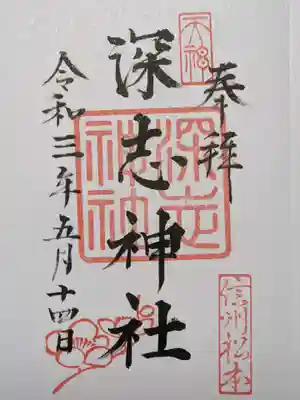 奉拝
天神
深志神社
深志神社
信州松本
令和三年五月十四日